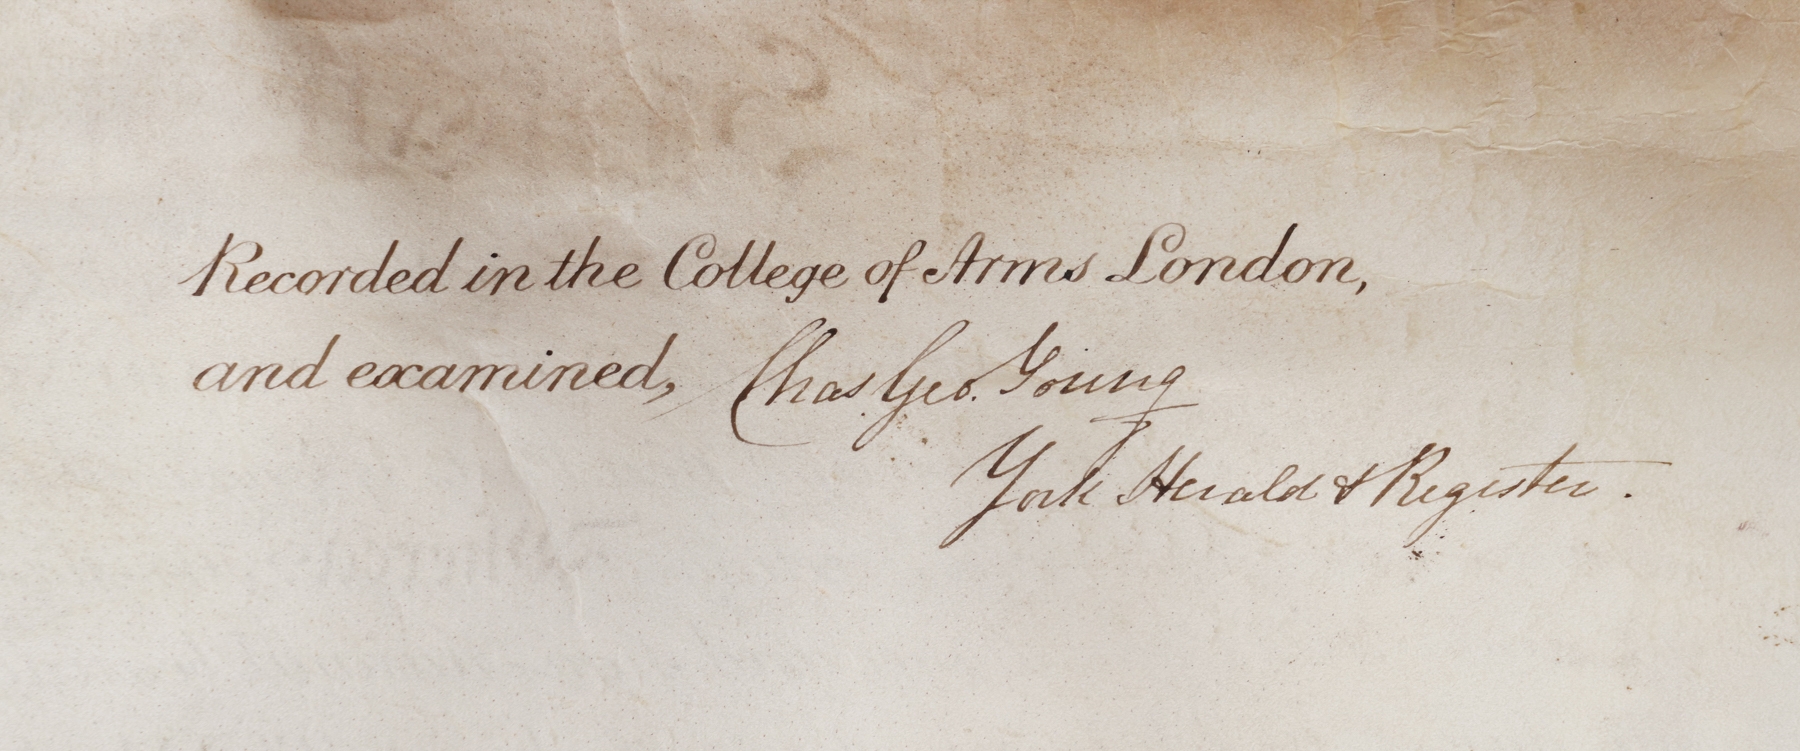 Recorded in the College of Arms London,
and examined, Chas Geo. Young
York Herald & Register.